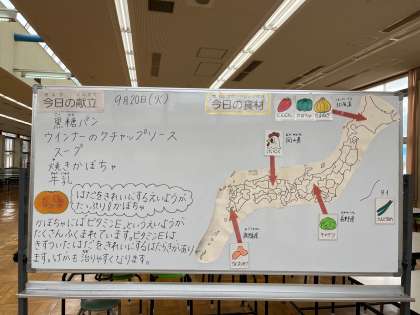 今日の献立
9月20日(火)
今日の食材
黒糖パン
ウインナーのケチャップソース
スープ
焼きかぼちゃ
牛乳
はだをきれいにするえいようが
たっぷり!かぼちゃ
かぼちゃにはビタミンEというえいようが
たくさんふくまれています。ビタミンEは
きずついたはだをきれいにするはたらきがあり
ます。けがも治りやすくなります。
北海道
岡山県
長野県
キャベツ
タイ